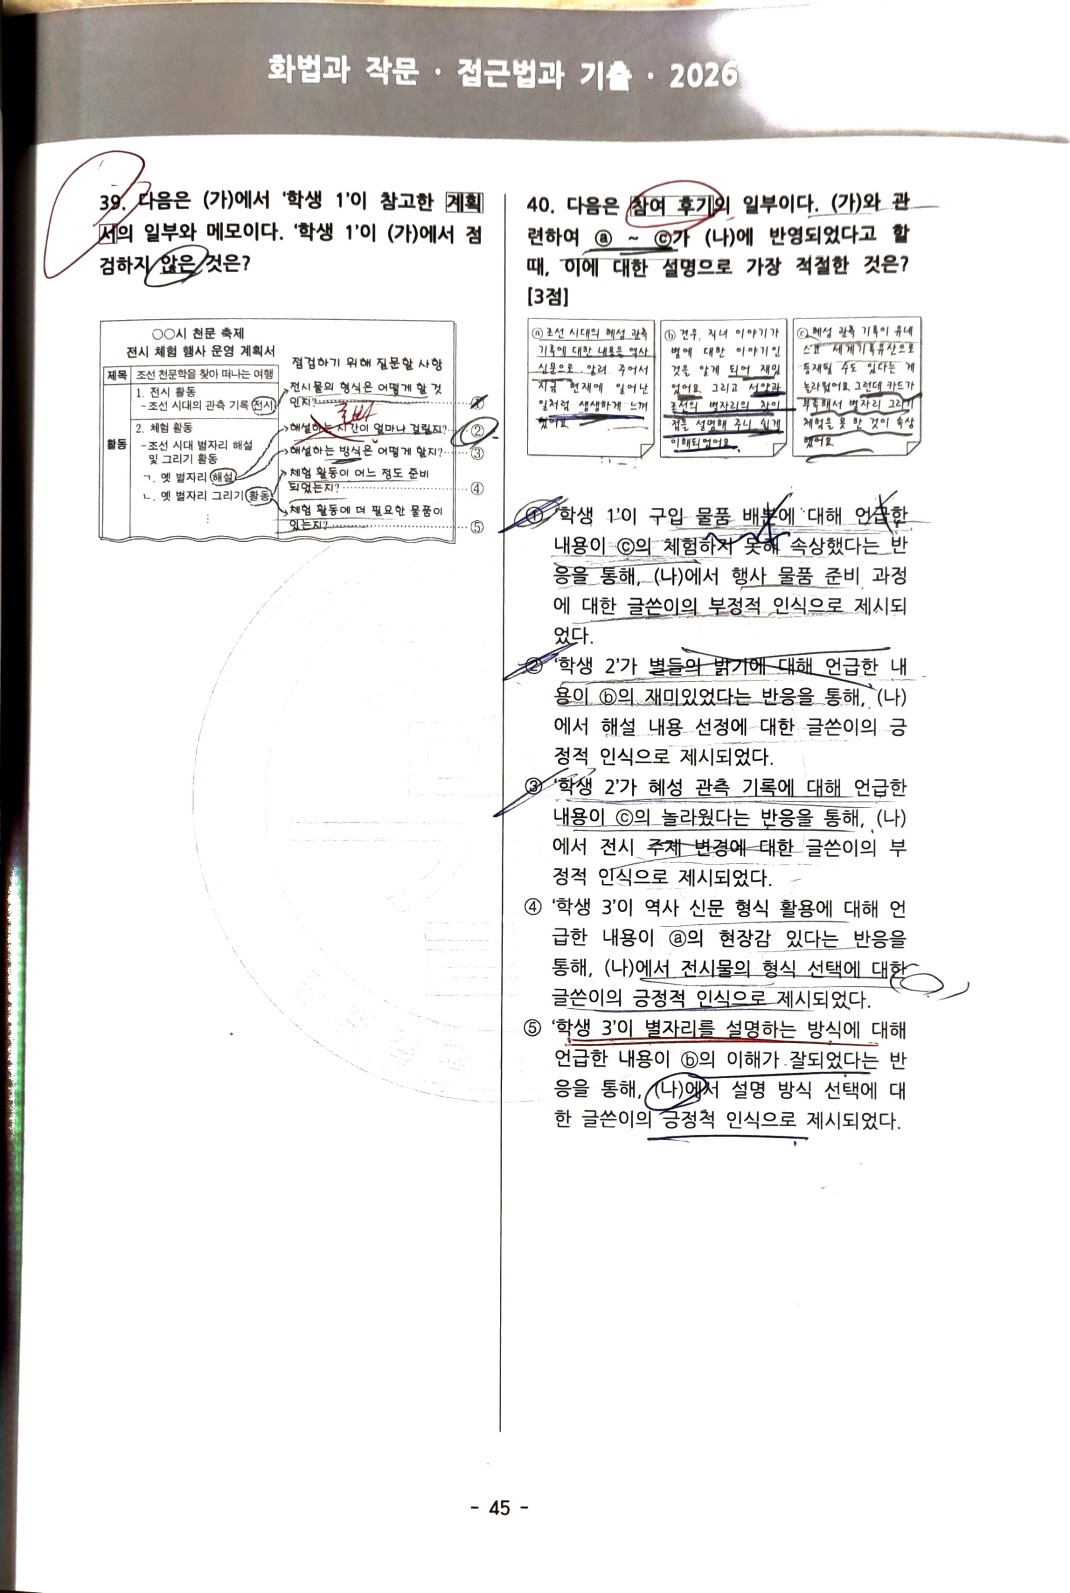 화법과 작문 · 접근법과 기출 · 2026
39. 다음은 (가)에서 '학생 1'이 참고한 계획
서의 일부와 메모이다. '학생 1'이 (가)에서 점
검하지 않은 것은?
○○시 천문 축제
전시 체험 행사 운영 계획서
제목 조선 천문학을 찾아 떠나는 여행
활동
1. 전시 활동
- 조선 시대의 관측 기록 전시
2. 체험 활동
- 조선 시대 별자리 해설
및 그리기 활동
ㄱ. 옛 별자리 해설
ㄴ. 옛 별자리 그리기 활동
⋮
점검하기 위해 질문할 사항
전시물의 형식은 어떻게 할 것
인지? ①
해설하는 시간이 얼마나 걸릴지? ②
해설하는 방식은 어떻게 할지? ③
체험 활동이 어느 정도 준비
되었는지? ④
체험 활동에 더 필요한 물품이
있는지? ⑤
40. 다음은 참여 후기의 일부이다. (가)와 관
련하여 ⓐ ~ ⓒ가 (나)에 반영되었다고 할
때, 이에 대한 설명으로 가장 적절한 것은?
[3점]
ⓐ 조선 시대의 혜성 관측
기록에 대한 내용을 역사
신문으로 알려 주어서
지금 현재에 일어난
일처럼 생생하게 느껴
졌어요
ⓑ 견우, 직녀 이야기가
별에 대한 이야기인
것을 알게 되어 재밌
었어요. 그리고 서양과
조선의 별자리의 차이
점을 설명해 주니 쉽게
이해되었어요.
ⓒ 혜성 관측 기록이 유네
스코 세계기록유산으로
등재될 수도 있다는 게
놀라웠어요. 그런데 카드가
부족해서 별자리 그리기
체험을 못 한 것이 속상
했어요.
① '학생 1'이 구입 물품 배부에 대해 언급한
내용이 ⓒ의 체험하지 못해 속상했다는 반
응을 통해, (나)에서 행사 물품 준비 과정
에 대한 글쓴이의 부정적 인식으로 제시되
었다.
② '학생 2'가 별들의 밝기에 대해 언급한 내
용이 ⓑ의 재미있었다는 반응을 통해, (나)
에서 해설 내용 선정에 대한 글쓴이의 긍
정적 인식으로 제시되었다.
③ '학생 2'가 혜성 관측 기록에 대해 언급한
내용이 ⓒ의 놀라웠다는 반응을 통해, (나)
에서 전시 주제 변경에 대한 글쓴이의 부
정적 인식으로 제시되었다.
④ '학생 3'이 역사 신문 형식 활용에 대해 언
급한 내용이 ⓐ의 현장감 있다는 반응을
통해, (나)에서 전시물의 형식 선택에 대한
글쓴이의 긍정적 인식으로 제시되었다.
⑤ '학생 3'이 별자리를 설명하는 방식에 대해
언급한 내용이 ⓑ의 이해가 잘되었다는 반
응을 통해, (나)에서 설명 방식 선택에 대
한 글쓴이의 긍정적 인식으로 제시되었다.
- 45 -